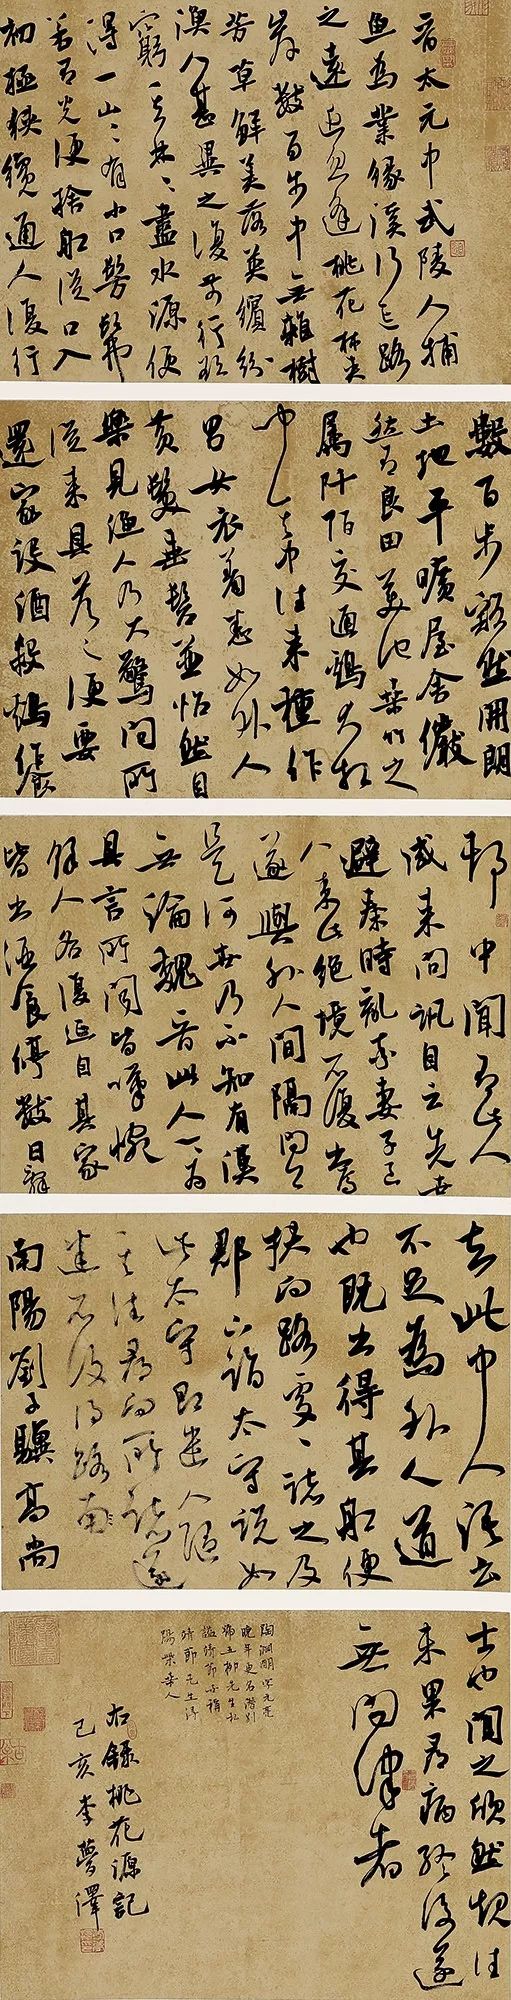 晉太元中武陵人捕
魚為業緣溪行忘路
之遠近忽逢桃花林夾
岸數百步中無雜樹
芳草鮮美落英繽紛
漁人甚異之復前行欲
窮其林林盡水源便
得一山山有小口髣髴
若有光便捨船從口入
初極狹纔通人復行
數百步豁然開朗
土地平曠屋舍儼
然有良田美池桑竹之
屬阡陌交通鷄犬相
聞其中往來種作
男女衣着悉如外人
黃髮垂髫並怡然自
樂見漁人乃大驚問所
從來具答之便要
還家設酒殺鷄作食
邨中聞有此人
咸來問訊自云先世
避秦時亂率妻子邑
人來此絕境不復出焉
遂與外人間隔問今
是何世乃不知有漢
無論魏晉此人一一為
具言所聞皆嘆惋
餘人各復延至其家
皆出酒食停數日辭
去此中人語云
不足為外人道
也既出得其船便
扶向路處處誌之及
郡下詣太守說如
此太守即遣人隨
其往尋向所誌遂
迷不復得路南
南陽劉子驥高尚
士也聞之欣然規往
未果尋病終後遂
無問津者
陶淵明字元亮
晚年更名潛別
號五柳先生私
謚靖節世稱
靖節先生潯
陽柴桑人
右錄桃花源記
己亥李夢澤